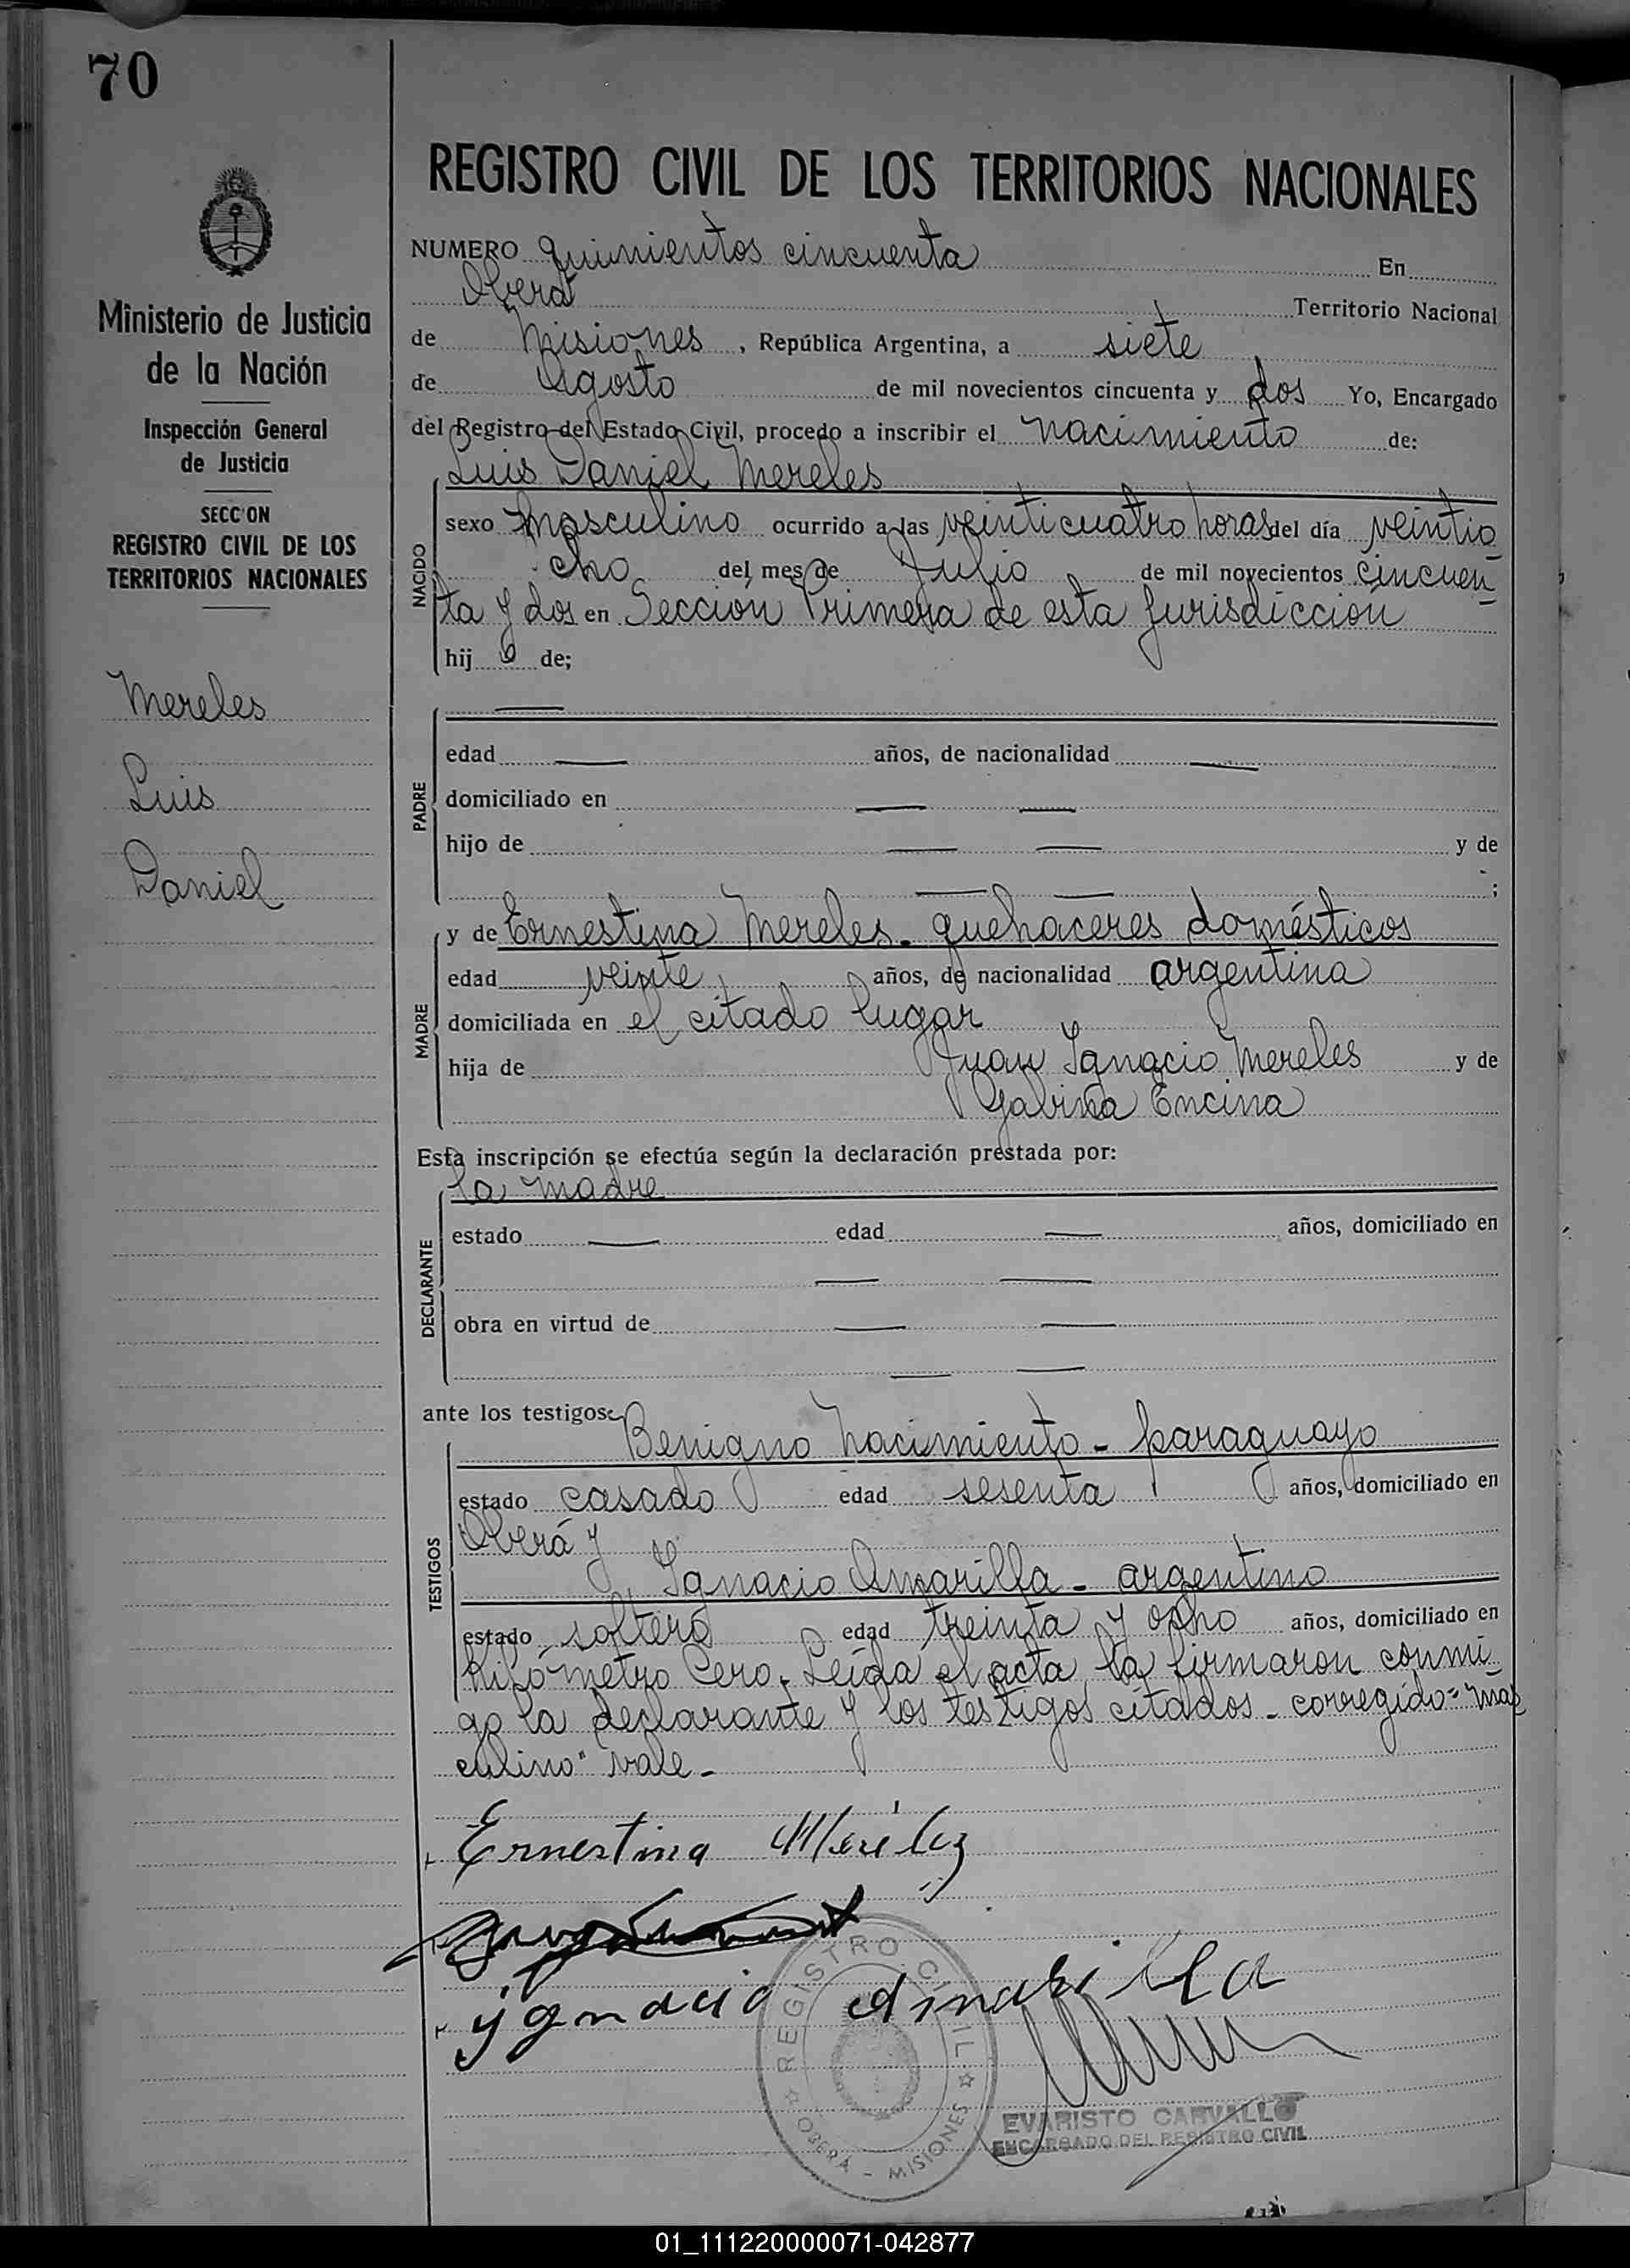 70
Ministerio de Justicia
de la Nación
Inspección General
de Justicia
SECCION
REGISTRO CIVIL DE LOS
TERRITORIOS NACIONALES
Mereles
Luis
Daniel
REGISTRO CIVIL DE LOS TERRITORIOS NACIONALES
NUMERO quinientos cincuenta En
Oberá Territorio Nacional
de Misiones, República Argentina, a siete
de Agosto de mil novecientos cincuenta y dos Yo, Encargado
del Registro del Estado Civil, procedo a inscribir el nacimiento de:
Luis Daniel Mereles
NACIDO
sexo masculino ocurrido a las veinticuatro horas del día veintio-
cho del mes de Julio de mil novecientos cincuen-
ta y dos en Sección Primera de esta jurisdicción
hijo de;
PADRE
edad años, de nacionalidad
domiciliado en
hijo de y de
;
MADRE
y de Ernestina Mereles. quehaceres domésticos
edad veinte años, de nacionalidad argentina
domiciliada en el citado lugar
hija de Juan Ignacio Mereles y de
Gabina Encina
Esta inscripción se efectúa según la declaración prestada por:
la madre
DECLARANTE
estado edad años, domiciliado en
obra en virtud de
ante los testigos:
TESTIGOS
Benigno Nacimiento - paraguayo
estado casado edad sesenta años, domiciliado en
Oberá y
Ignacio Amarilla - argentino
estado soltero edad treinta y ocho años, domiciliado en
Kilómetro Cero. Leída el acta, la firmaron conmi-
go la declarante y los testigos citados - corregido = mas
culino" vale -
Ernestina Merelez
ygnacio Amarilla
REGISTRO CIVIL
OBERÁ - MISIONES
EVARISTO CARVALLO
ENCARGADO DEL REGISTRO CIVIL
01_111220000071-042877